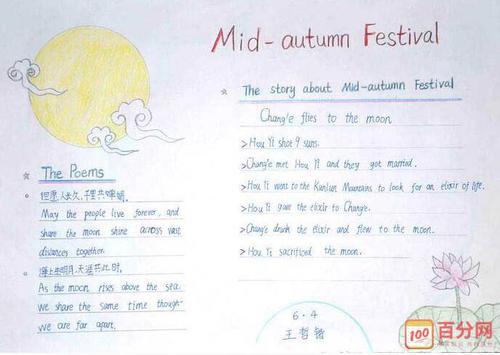 Mid-autumn Festival
The Poems
但愿人长久,千里共婵娟.
May the people live forever, and
share the moon shine across vast
distances together.
海上生明月,天涯共此时.
As the moon rises above the sea.
we share the same time though
we are far apart.
The story about Mid-autumn Festival
Chang'e flies to the moon
>Hou Yi shot 9 suns.
>Chang'e met Hou Yi and they got married.
>Hou Yi went to the Kunlun Mountains to look for an elixir of life.
>Hou Yi gave the elixir to Chang'e.
>Chang'e drank the elixir and flew to the moon.
>Hou Yi sacrificed the moon.
6·4
王哲锴
100
百分网